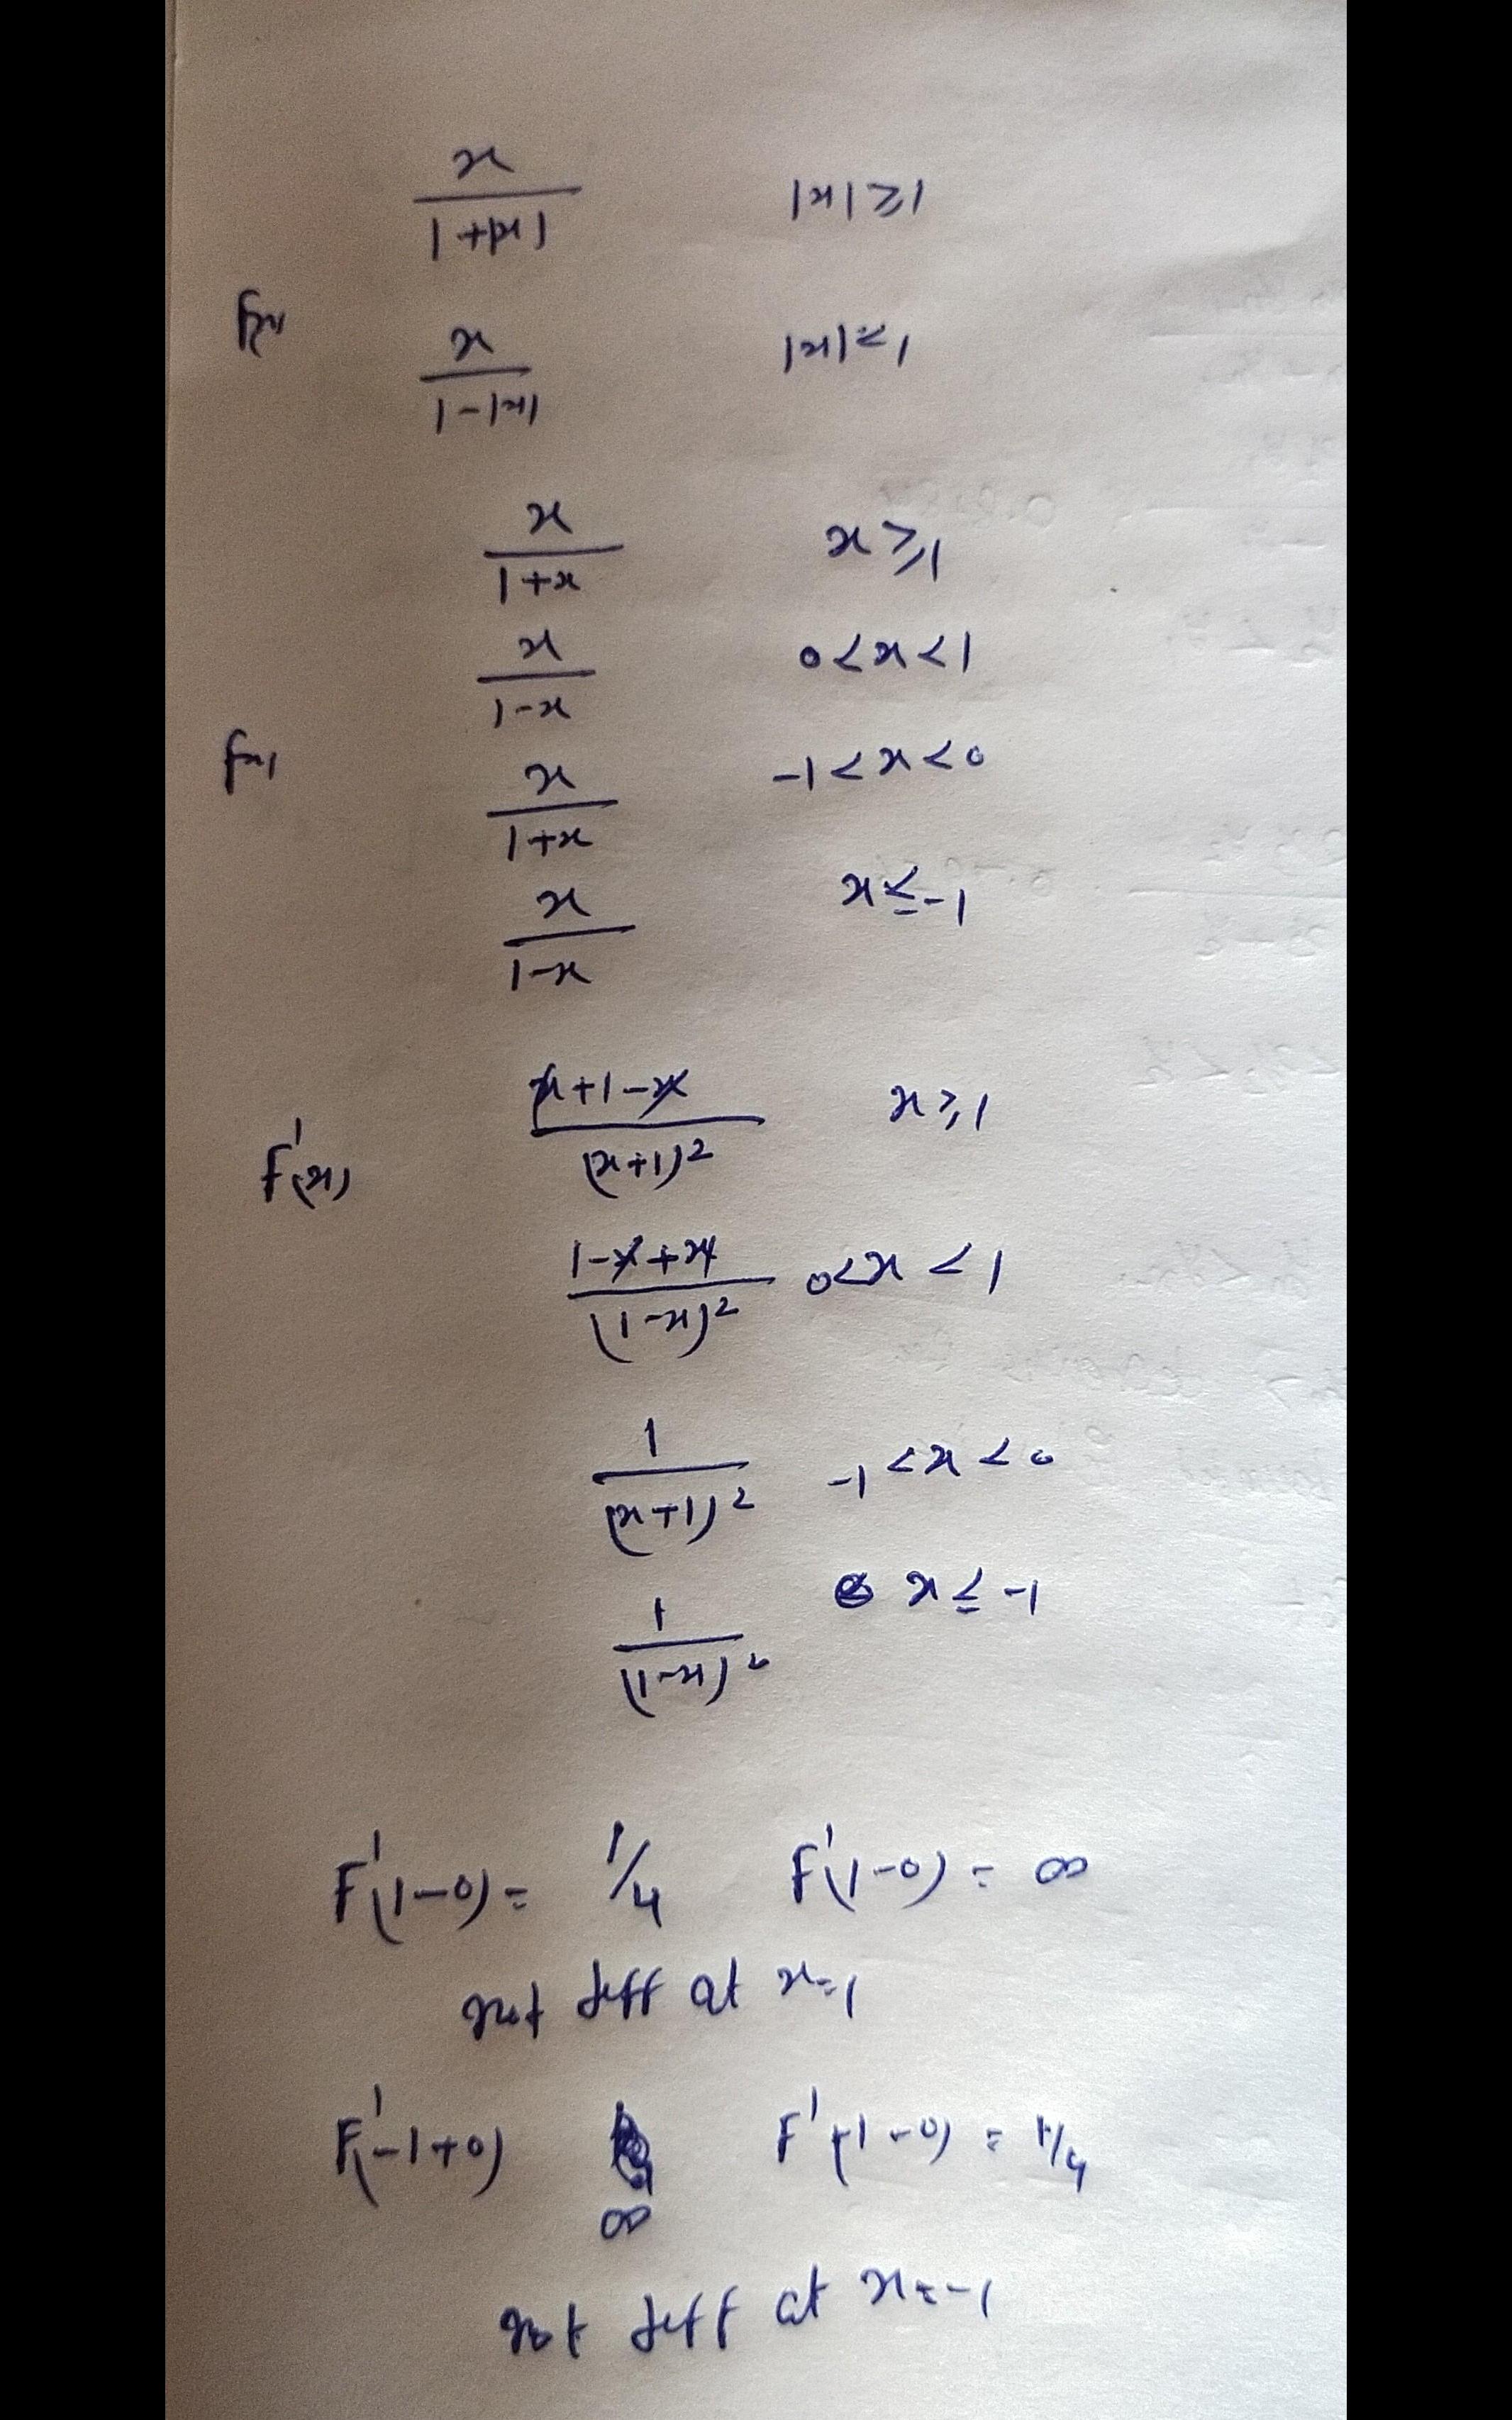 x/(1+|x|) |x| ≥ 1
f(x)
x/(1-|x|) |x| ≤ 1
x/(1+x) x ≥ 1
x/(1-x) 0 < x < 1
f(x)
x/(1+x) -1 < x < 0
x/(1-x) x ≤ -1
(x+1-x)/(x+1)² x ≥ 1
F'(x)
(1-x+x)/(1-x)² 0 < x < 1
1/(x+1)² -1 < x < 0
1/(1-x)² x ≤ -1
F'(1-0) = 1/4 F'(1-0) = ∞
not diff at x=1
F'(-1+0) ∞ F'(-1-0) = 1/4
not diff at x=-1